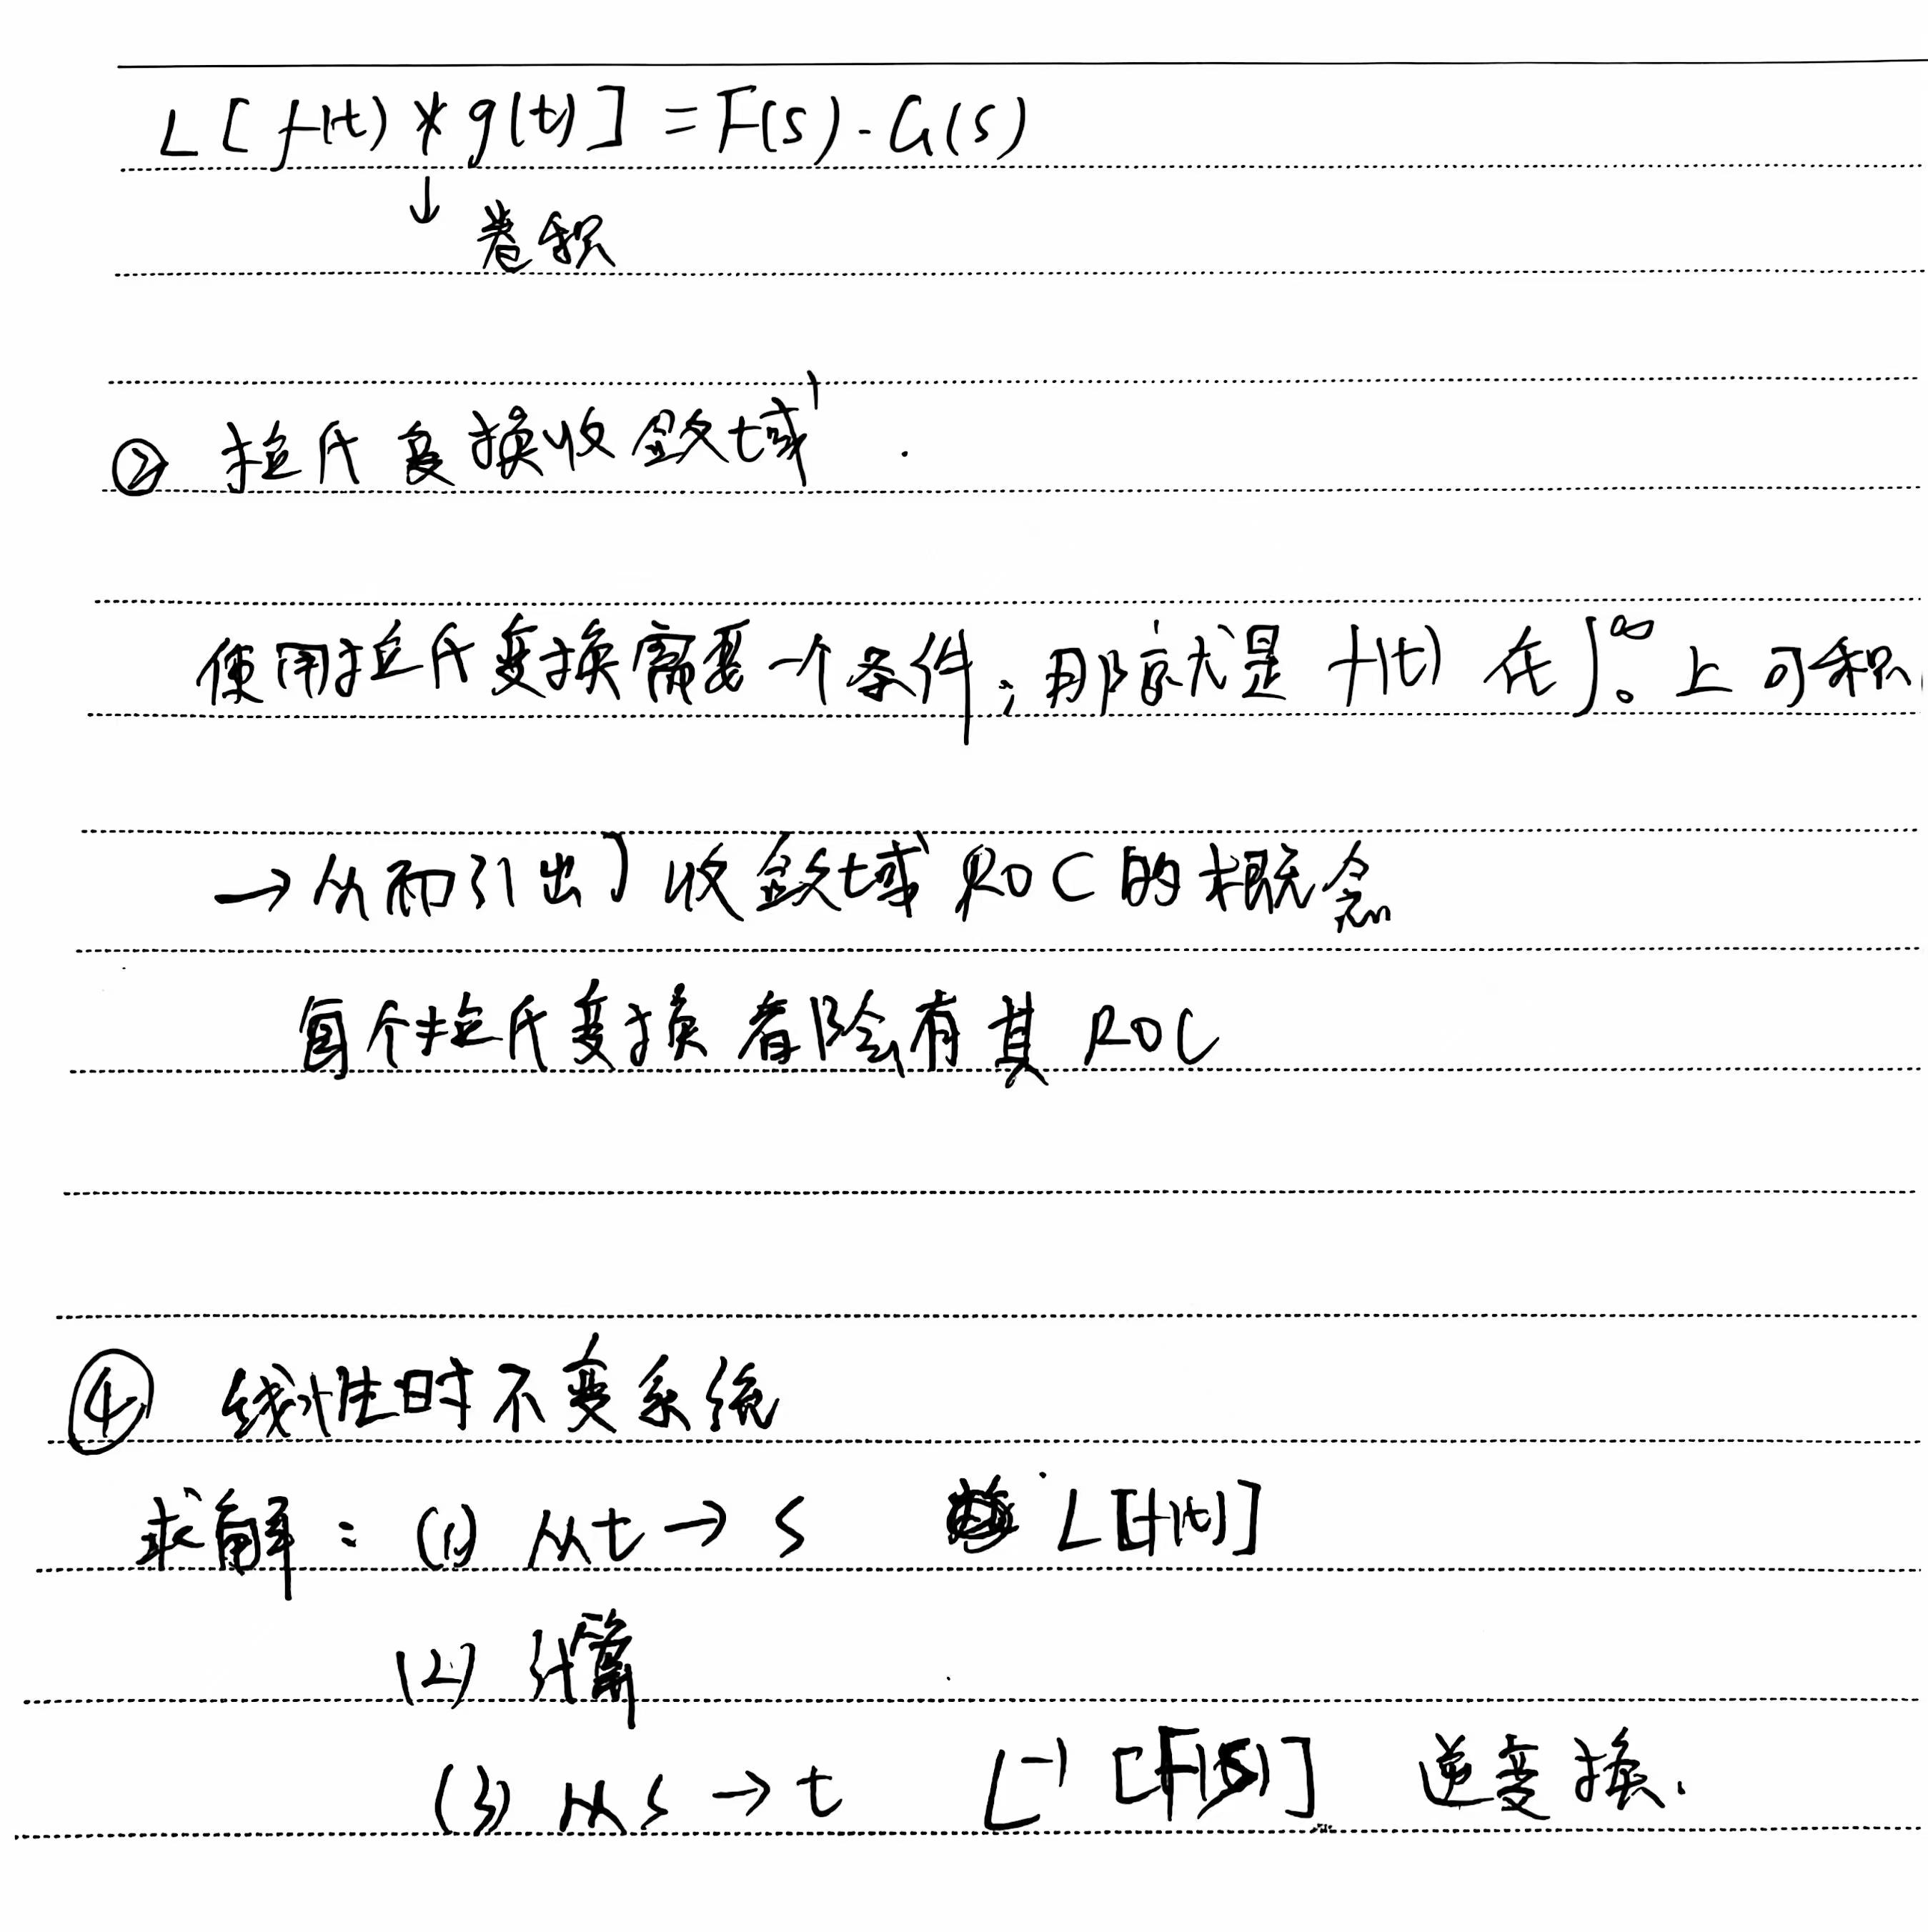 L[f(t) * g(t)] = F(s)·G(s)
↓ 卷积
② 拉氏变换收敛域
使用拉氏变换需要一个条件，那就是 f(t) 在 ∫₀^∞ 上可积
→ 从而引出了收敛域 ROC 的概念
每个拉氏变换都会有其 ROC
④ 线性时不变系统
求解：(1) 从 t → s L[f(t)]
(2) 计算
(3) 从 s → t L⁻¹[F(s)] 逆变换.